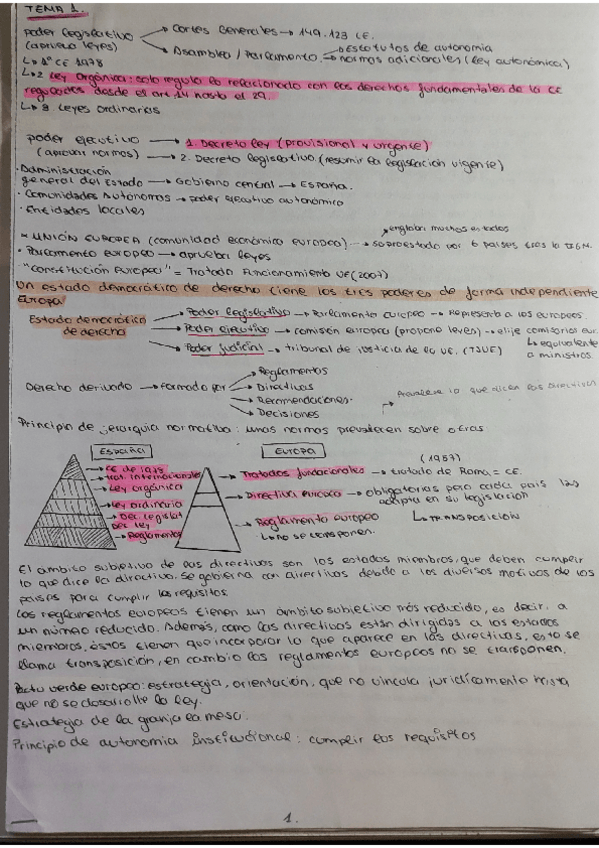 TEMA 1.
poder legislativo → Cortes Generales → 149.123 CE.
(aprueva leyes) → Asamblea / Parlamento → Estatutos de autonomia
→ normas adicionales (ley autonómica)
↳ 1º CE 1978
↳ 2 Ley Orgánica: solo regula lo relacionado con los derechos fundamentales de la CE
regulados desde el art 14 hasta el 29.
↳ 3 Leyes ordinarias
poder ejecutivo → 1. Decreto ley (provisional y urgente)
(aprovar normas) → 2. Decreto legislativo (resumir la legislación vigente)
· Administración
general del Estado → Gobierno central → España.
· Comunidades Autónomas → poder ejecutivo autonómico
· Entidades locales
→ engloba muchos estados
- UNIÓN EUROPEA (comunidad económica europea) → por 6 países tras la IIGM.
· Parlamento europeo → aprueba leyes
"Constitución Europea" = Tratado Funcionamiento UE (2007)
Un estado democrático de derecho tiene los tres poderes de forma independiente
Europa
Estado democrático de derecho → Poder legislativo → Parlamento europeo → Representa a los europeos.
→ Poder ejecutivo → comisión europea (propone leyes) → elije comisarios eur.
↳ equivalente a ministros.
→ Poder judicial → tribunal de justicia de la UE. (TJUE)
Derecho derivado → formado por → Reglamentos
→ Directivas
→ Recomendaciones.
→ Decisiones
prevalece lo que dicen las Directivas
Principio de jerarquía normativa: unas normas prevalecen sobre otras
España
→ CE de 1978
→ trat. internacionales
→ Ley orgánica
→ Ley ordinaria
→ Dec. legislat
Dec. ley
→ Reglamentos
Europa
(1957)
→ Tratados fundacionales → tratado de Roma = CE.
→ Directiva europea → obligatorias pero cada país las
adapta en su legislación
↳ TRANSPOSICIÓN
→ Reglamento europeo
↳ no se transponen.
El ambito subjetivo de las directivas son los estados miembros, que deben cumplir
lo que dice la directiva. Se gobierna con directivas debido a los diversos motivos de los
países para cumplir los requisitos
Los reglamentos europeos tienen un ámbito subjetivo más reducido, es decir, a
un número reducido. Además, como las directivas están dirigidas a los estados
miembros, éstos tienen que incorporar lo que aparece en las directivas, esto se
llama transposición, en cambio los reglamentos europeos no se transponen.
Pacto verde europeo: estrategia, orientación, que no vincula jurídicamente hasta
que no se desarrolle la ley.
Estrategia de la granja a la mesa.
Principio de autonomía institucional: cumplir los requisitos
1.